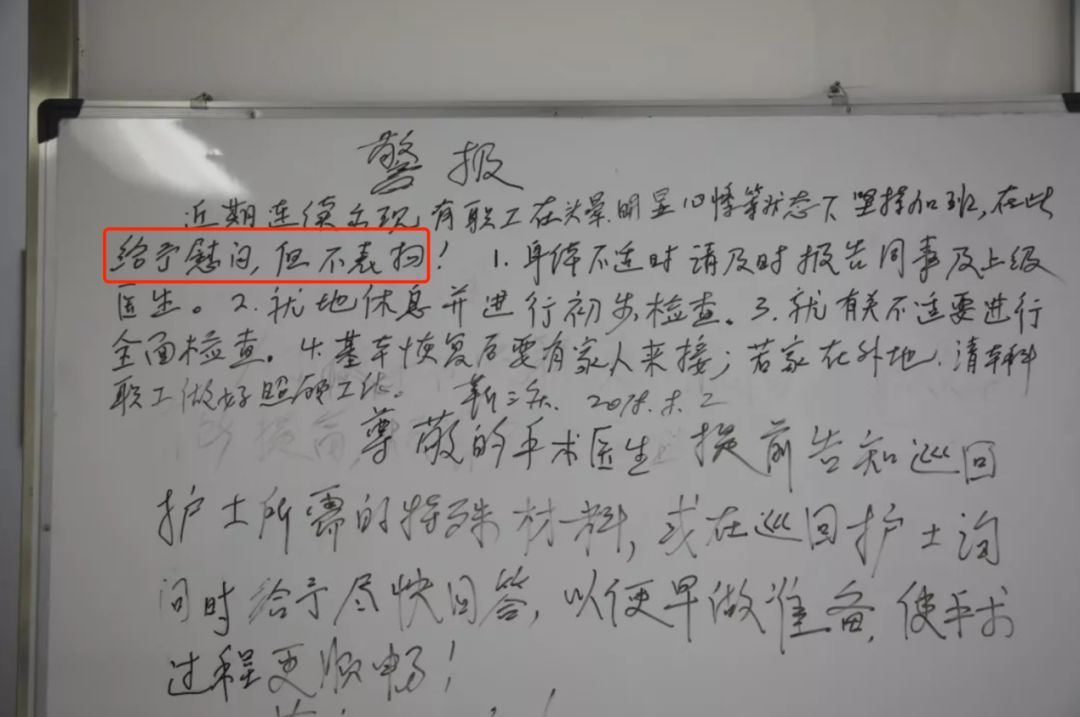 警报
近期连续出现有职工在头晕、明显心悸等状态下坚持加班,在此
给予慰问,但不表扬! 1.身体不适时请及时报告同事及上级
医生。2.就地休息并进行初步检查。3.就有关不适要进行
全面检查。4.基本恢复后要有家人来接;若家在外地,请本科
职工做好照顾工作。 2018.8.2
尊敬的手术医生 提前告知巡回
护士所需的特殊材料,或在巡回护士询
问时给予尽快回答,以便早做准备,使手术
过程更顺畅!